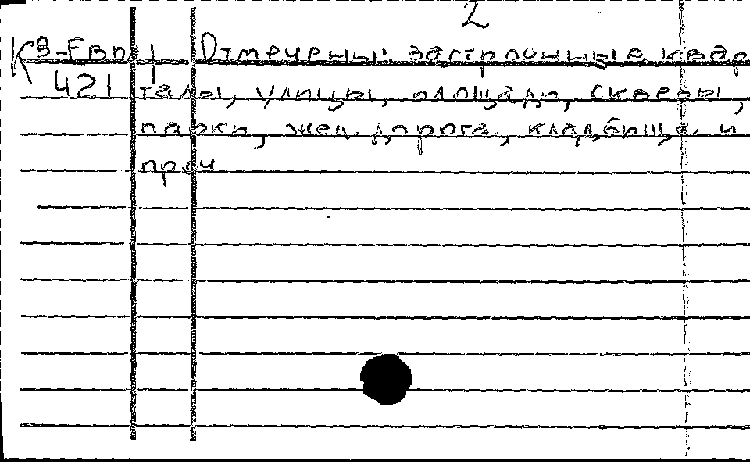 2
К 3-Евр / 1 Отмечены: застроенные квар
421 талы, улицы, площади, скверы,
парки, жел. дорога, кладбища и
проч